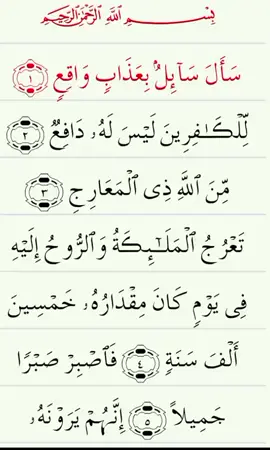 بِسْمِ ٱللَّهِ ٱلرَّحْمَٰنِ ٱلرَّحِيمِ
سَأَلَ سَآئِلٌۢ بِعَذَابٍ وَاقِعٍ ١
لِّلْكَٰفِرِينَ لَيْسَ لَهُۥ دَافِعٌ ٢
مِّنَ ٱللَّهِ ذِى ٱلْمَعَارِجِ ٣
تَعْرُجُ ٱلْمَلَٰٓئِكَةُ وَٱلرُّوحُ إِلَيْهِ
فِى يَوْمٍ كَانَ مِقْدَارُهُۥ خَمْسِينَ
أَلْفَ سَنَةٍ ٤ فَٱصْبِرْ صَبْرًا
جَمِيلاً ٥ إِنَّهُمْ يَرَوْنَهُۥ